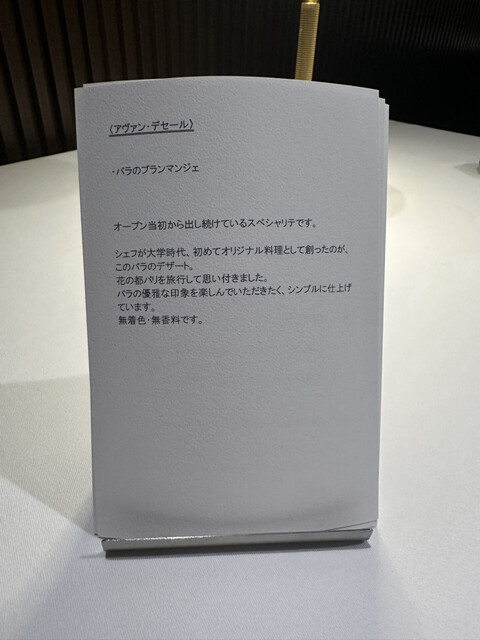 〈アヴァン・デセール〉
・バラのブランマンジェ
オープン当初から出し続けているスペシャリテです。
シェフが大学時代、初めてオリジナル料理として創ったのが、
このバラのデザート。
花の都パリを旅行して思い付きました。
バラの優雅な印象を楽しんでいただきたく、シンプルに仕上げ
ています。
無着色・無香料です。